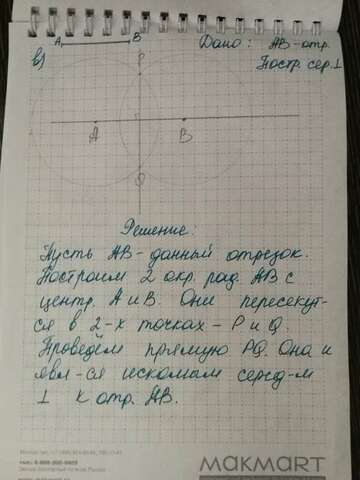 A B Дано: АВ-отр.
в) Постр. сер. ⊥
P
A B
Q
Решение:
Пусть АВ - данный отрезок.
Построим 2 окр. рад. АВ с
центр. А и В. Они пересекут-
ся в 2-х точках - P и Q.
Проведём прямую PQ. Она и
явл-ся искомым серед-м
⊥ к отр. АВ.
МАКМАRТ